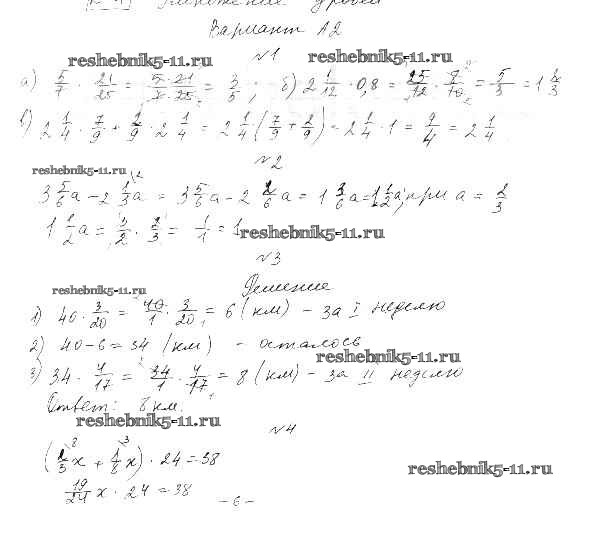 Умножение дробей
Вариант А2
№1
reshebnik5-11.ru reshebnik5-11.ru
а) 5/7 · 21/25 = 5·21/7·25 = 3/5 ; б) 2 1/12 · 0,8 = 25/12 · 8/10 = 5/3 = 1 2/3
в) 2 1/4 · 7/9 + 2/9 · 2 1/4 = 2 1/4 · (7/9 + 2/9) = 2 1/4 · 1 = 9/4 = 2 1/4
№2
reshebnik5-11.ru
3 5/6 а - 2 1/3 а = 3 5/6 а - 2 2/6 а = 1 3/6 а = 1 1/2 а, при а = 2/3
1 1/2 а = 3/2 · 2/3 = 1/1 = 1
reshebnik5-11.ru
№3
reshebnik5-11.ru
Решение
1) 40 · 3/20 = 40/1 · 3/20 = 6 (км) - за I неделю
2) 40 - 6 = 34 (км) - осталось
reshebnik5-11.ru
3) 34 · 4/17 = 34/1 · 4/17 = 8 (км) - за II неделю
Ответ: 8 км.
reshebnik5-11.ru
№4
(2/3 x + 1/8 x) · 24 = 38
reshebnik5-11.ru
19/24 x · 24 = 38
- 6 -